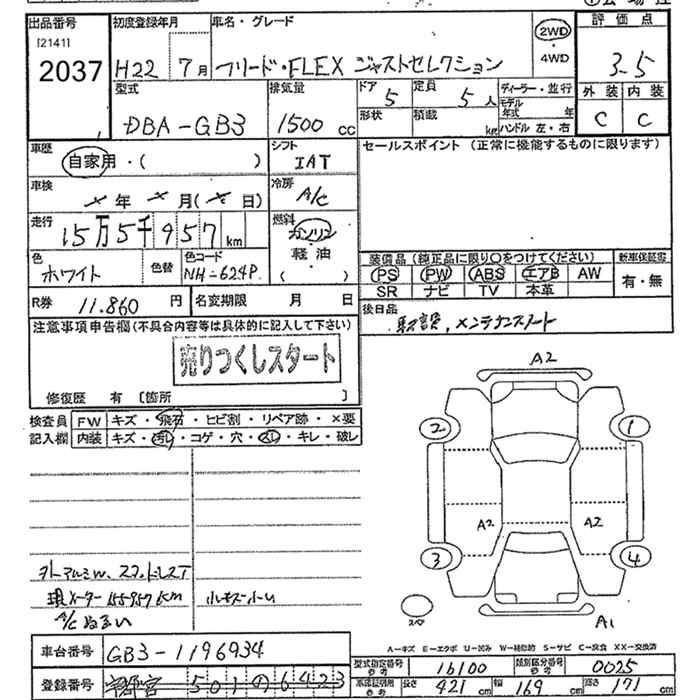 出品番号 初度登録年月 車名・グレード 2WD 評価点
[2141] ・
2037 H22 7月 フリード・FLEX ジャストセレクション 4WD 3.5
型式 排気量 ドア 定員 ディーラー・並行 外装 内装
DBA-GB3 1500cc 5 5人 モデル年式 年 C C
形状 積載 kg ハンドル 左・右
車歴 シフト セールスポイント (正常に機能するものに限ります)
自家用・( ) IAT
車検 年 月( 日) 冷房 A/C
走行 15万5千957km 燃料 ガソリン
軽油
( )
色 ホワイト 色替 色コード NH-624P
装備品 (純正品に限り○をつけてください) 新車保証書
PS PW ABS エアB AW 有・無
SR ナビ TV 本革
R券 11.860円 名変期限 月 日
後日品
取説, メンテナンスノート
注意事項申告欄(不具合内容等は具体的に記入して下さい)
売りつくしスタート
修復歴 有 [箇所 ]
検査員 FW キズ・飛石・ヒビ割・リペア跡・×要
記入欄 内装 キズ・汚レ・コゲ・穴・スレ・キレ・破レ
A2
2 1
A2 A2
3 4
スペア A1
現メーター155957km 小キズ・小U
A/Cぬるい
A-キズ E-エクボ U-凹み W-補修跡 S-サビ C-腐食 XX-交換済
車台番号 GB3-1196934
型式指定番号 参考 16100 類別区分番号 参考 0025
登録番号 宇都宮 501の6423
長さ 421cm 幅 169cm 高さ 171cm